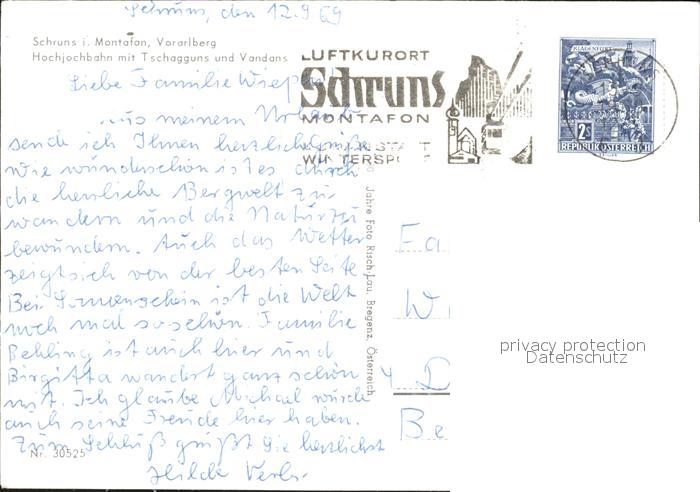 Schruns, den 12.9.69
Schruns i. Montafon, Vorarlberg
Hochjochbahn mit Tschagguns und Vandans
LUFTKURORT
Schruns
MONTAFON
WINTERSP
KLAGENFURT
2S
REPUBLIK ÖSTERREICH
Liebe Familie
Aus meinem Urlaub
sende ich Ihnen herzliche Grüße
Wie wunderschön ist es durch
die herrliche Bergwelt zu
wandern und die Natur zu
bewundern. Auch das Wetter
zeigt sich von der besten Seite
Bei Sonnenschein ist die Welt
noch mal so schön. Familie
Behling ist auch hier und
Birgitta wandert ganz schön
mit. Ich glaube Michael würde
auch seine Freude hier haben.
Zum Schluß grüßt Sie herzlichst
Hilde
Nr. 30525
Jahre Foto Risch-Lau, Bregenz, Österreich
Fa
W
4 D
Be
privacy protection
Datenschutz